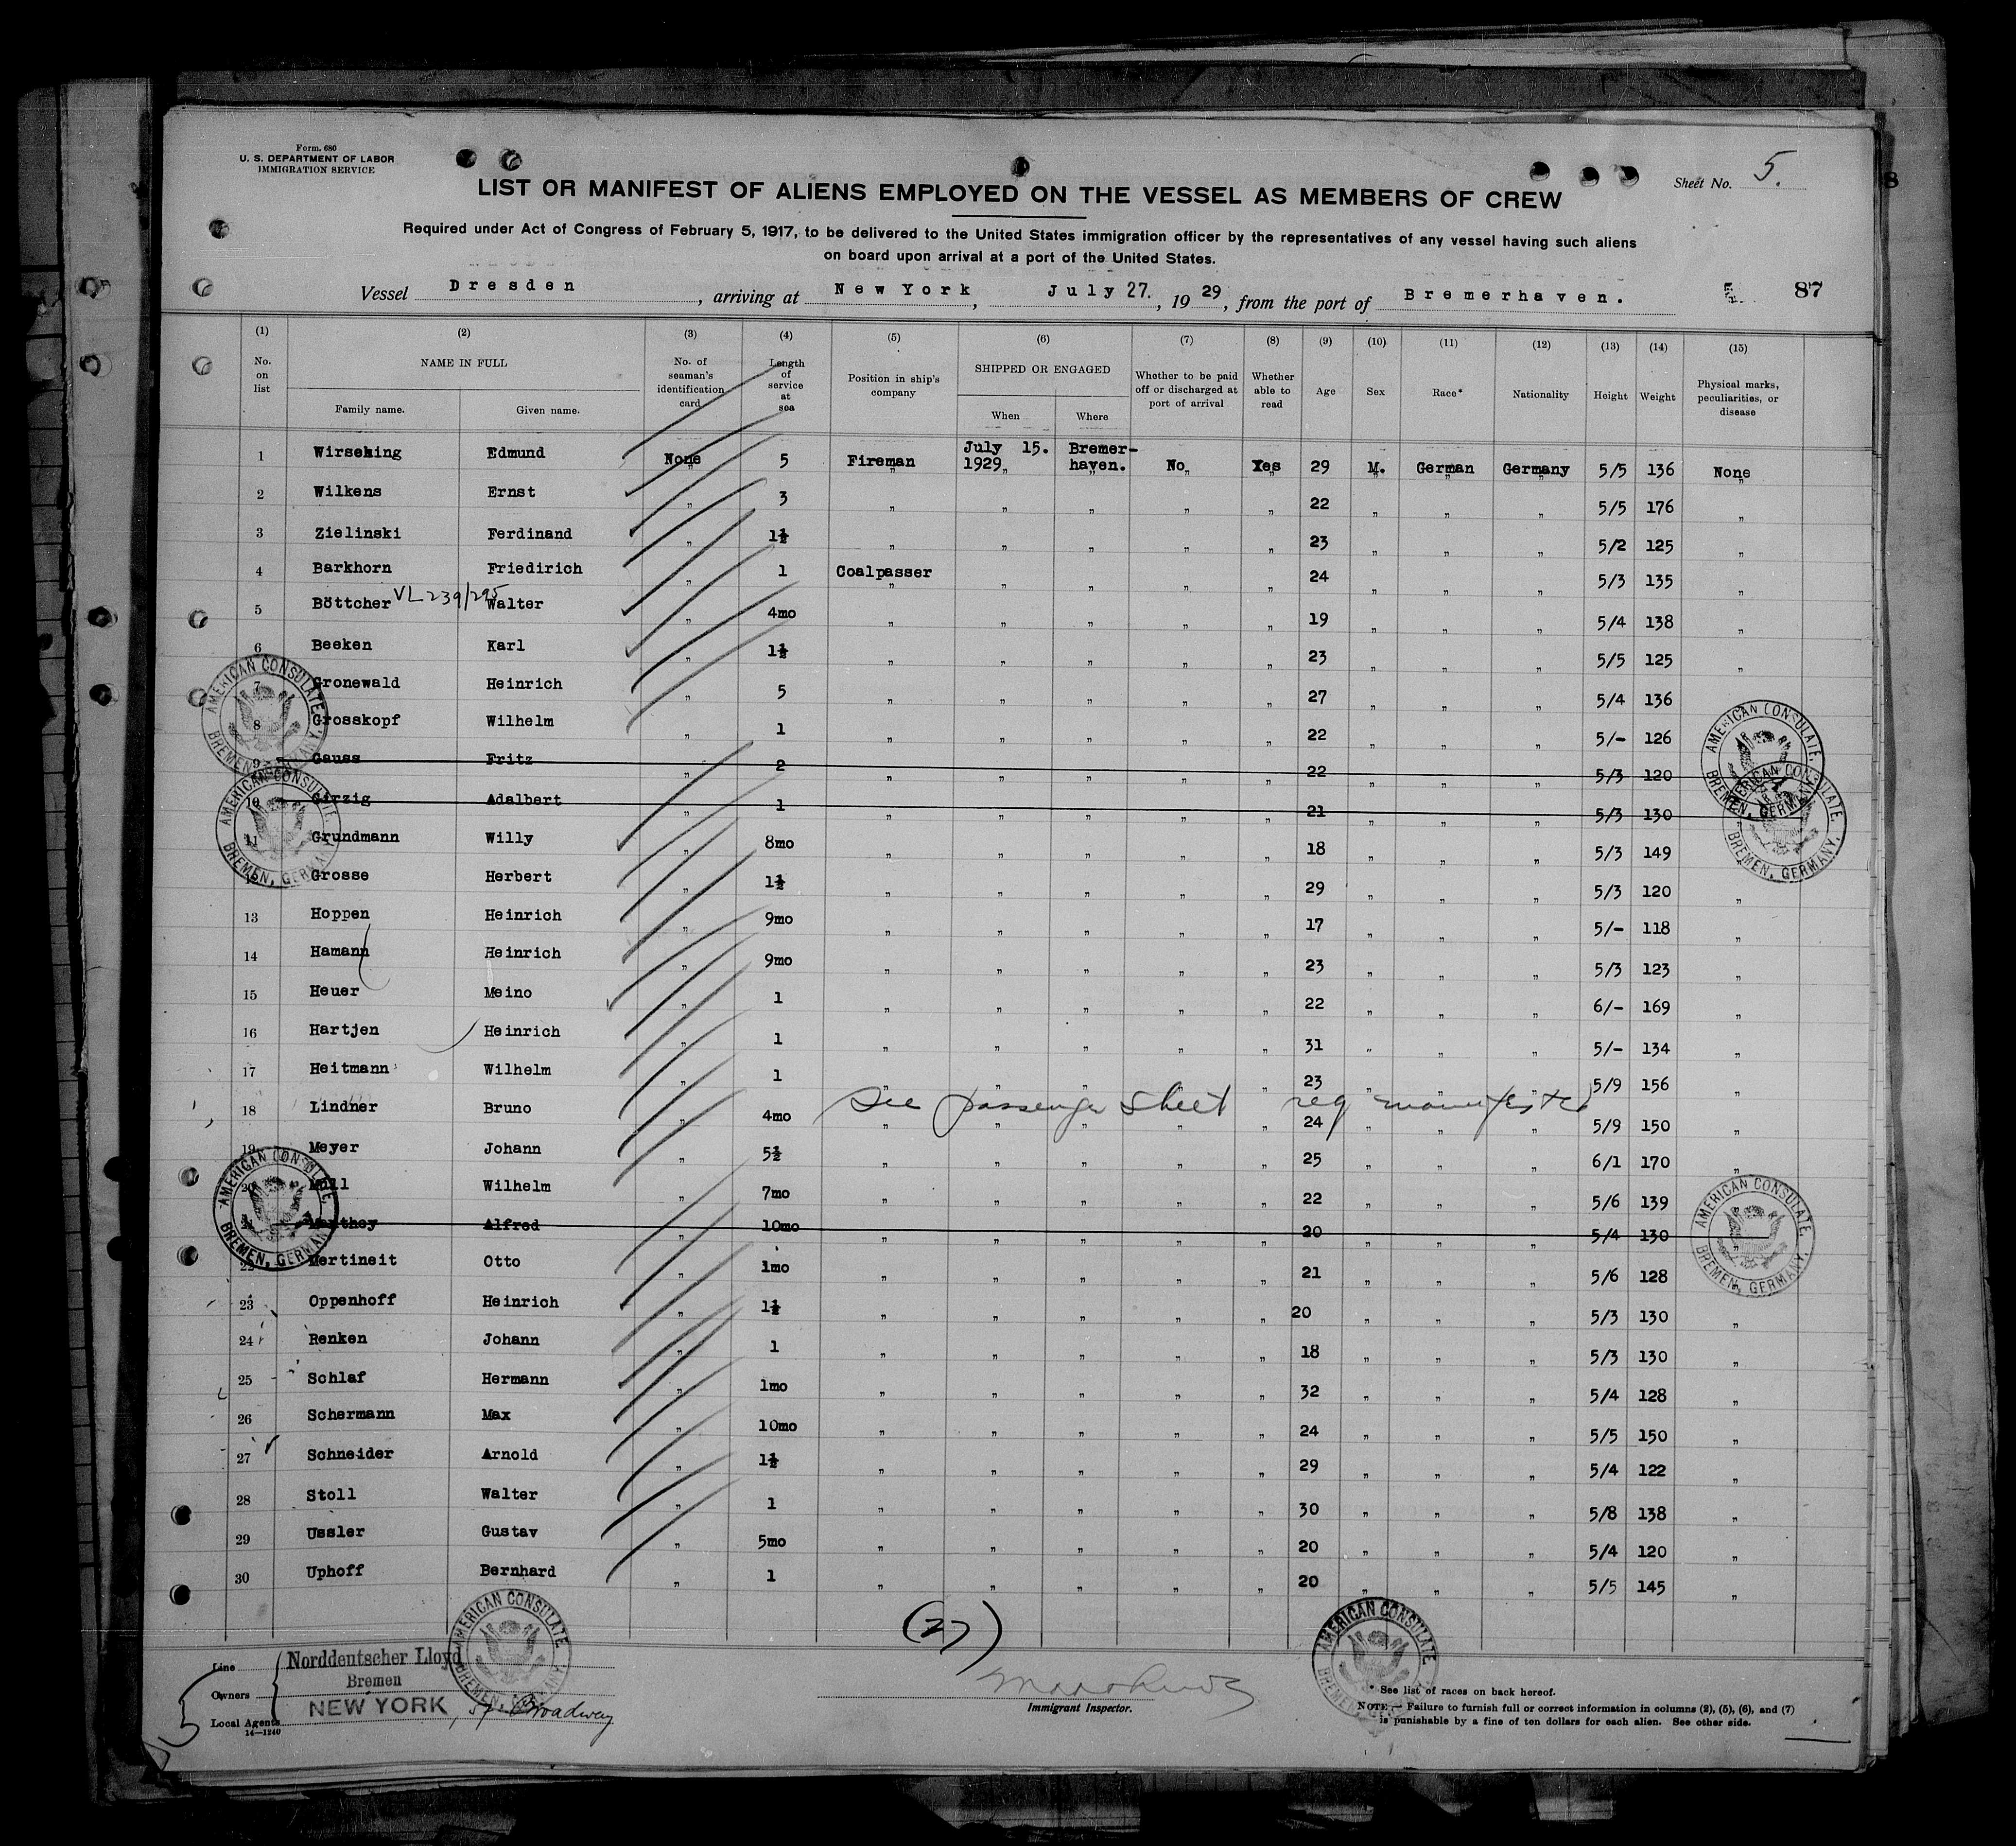 Form. 680
U. S. DEPARTMENT OF LABOR
IMMIGRATION SERVICE
Sheet No. 5.
8
LIST OR MANIFEST OF ALIENS EMPLOYED ON THE VESSEL AS MEMBERS OF CREW
Required under Act of Congress of February 5, 1917, to be delivered to the United States immigration officer by the representatives of any vessel having such aliens
on board upon arrival at a port of the United States.
Vessel Dresden, arriving at New York, July 27., 1929, from the port of Bremerhaven. 87
(1) (2) (3) (4) (5) (6) (7) (8) (9) (10) (11) (12) (13) (14) (15)
No. on list NAME IN FULL Family name. Given name. No. of seaman's identification card Length of service at sea Position in ship's company SHIPPED OR ENGAGED When Where Whether to be paid off or discharged at port of arrival Whether able to read Age Sex Race* Nationality Height Weight Physical marks, peculiarities, or disease
1 Wirseking Edmund None 5 Fireman July 15. 1929 Bremerhaven. No Yes 29 M. German Germany 5/5 136 None
2 Wilkens Ernst " 3 " " " " " 22 " " " 5/5 176 "
3 Zielinski Ferdinand " 1½ " " " " " 23 " " " 5/2 125 "
4 Barkhorn Friedirich " 1 Coalpasser " " " " 24 " " " 5/3 135 "
5 Böttcher VL239/295 Walter " 4mo " " " " " 19 " " " 5/4 138 "
6 Beeken Karl " 1½ " " " " " 23 " " " 5/5 125 "
7 Gronewald Heinrich " 5 " " " " " 27 " " " 5/4 136
8 Grosskopf Wilhelm " 1 " " " " " 22 " " " 5/- 126
9 Gauss Fritz " 2 " " " " " 22 " " " 5/3 120
10 Girzig Adalbert " 1 " " " " " 21 " " " 5/3 130
11 Grundmann Willy " 8mo " " " " " 18 " " " 5/3 149
Grosse Herbert " 1½ " " " " " 29 " " " 5/3 120 "
13 Hoppen Heinrich " 9mo " " " " " 17 " " " 5/- 118 "
14 Hamann Heinrich " 9mo " " " " " 23 " " " 5/3 123 "
15 Heuer Meino " 1 " " " " " 22 " " " 6/- 169 "
16 Hartjen Heinrich " 1 " " " " " 31 " " " 5/- 134 "
17 Heitmann Wilhelm " 1 " " " " " 23 " " " 5/9 156 "
See passenger sheet reg manifested
18 Lindner Bruno " 4mo " " " " " 24 " " " 5/9 150 "
19 Meyer Johann " 5½ " " " " " 25 " " " 6/1 170 "
20 Müll Wilhelm " 7mo " " " " " 22 " " " 5/6 139
21 Manthey Alfred " 10mo " " " " " 20 " " " 5/4 130 "
22 Mertineit Otto " 1mo " " " " " 21 " " " 5/6 128 "
23 Oppenhoff Heinrich " 1½ " " " " " 20 " " " 5/3 130 "
24 Renken Johann " 1 " " " " " 18 " " " 5/3 130 "
25 Schlaf Hermann " 1mo " " " " " 32 " " " 5/4 128 "
26 Schermann Max " 10mo " " " " " 24 " " " 5/5 150 "
27 Schneider Arnold " 1½ " " " " " 29 " " " 5/4 122 "
28 Stoll Walter " 1 " " " " " 30 " " " 5/8 138 "
29 Ussler Gustav " 5mo " " " " " 20 " " " 5/4 120 "
30 Uphoff Bernhard " 1 " " " " " 20 " " " 5/5 145 "
AMERICAN CONSULATE, BREMEN, GERMANY.
AMERICAN CONSULATE, BREMEN, GERMANY.
AMERICAN CONSULATE, BREMEN, GERMANY.
AMERICAN CONSULATE, BREMEN, GERMANY.
AMERICAN CONSULATE, BREMEN, GERMANY.
AMERICAN CONSULATE, BREMEN, GERMANY.
AMERICAN CONSULATE, BREMEN, GERMANY.
AMERICAN CONSULATE, BREMEN, GERMANY.
(27)
Line Norddeutscher Lloyd
Owners Bremen
Local Agents NEW YORK, 57 Broadway
14—1240
Immigrant Inspector.
* See list of races on back hereof.
NOTE.—Failure to furnish full or correct information in columns (2), (5), (6), and (7)
is punishable by a fine of ten dollars for each alien. See other side.